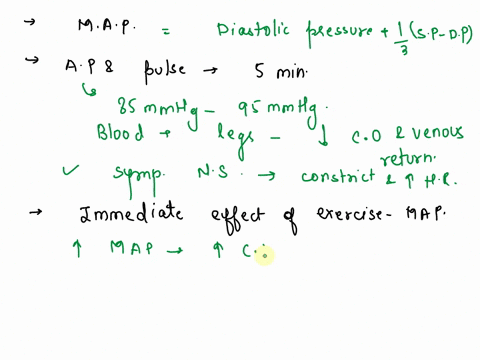 → M.A.P. = Diastolic pressure + 1/3 (S.P - D.P)
→ A.P & pulse → 5 min.
85 mmHg - 95 mmHg.
Blood → legs - ↓ C.O & venous return.
✓ symp. N.S. → constrict & ↑ H.R.
→ Immediate effect of exercise - MAP.
↑ MAP → ↑ C.